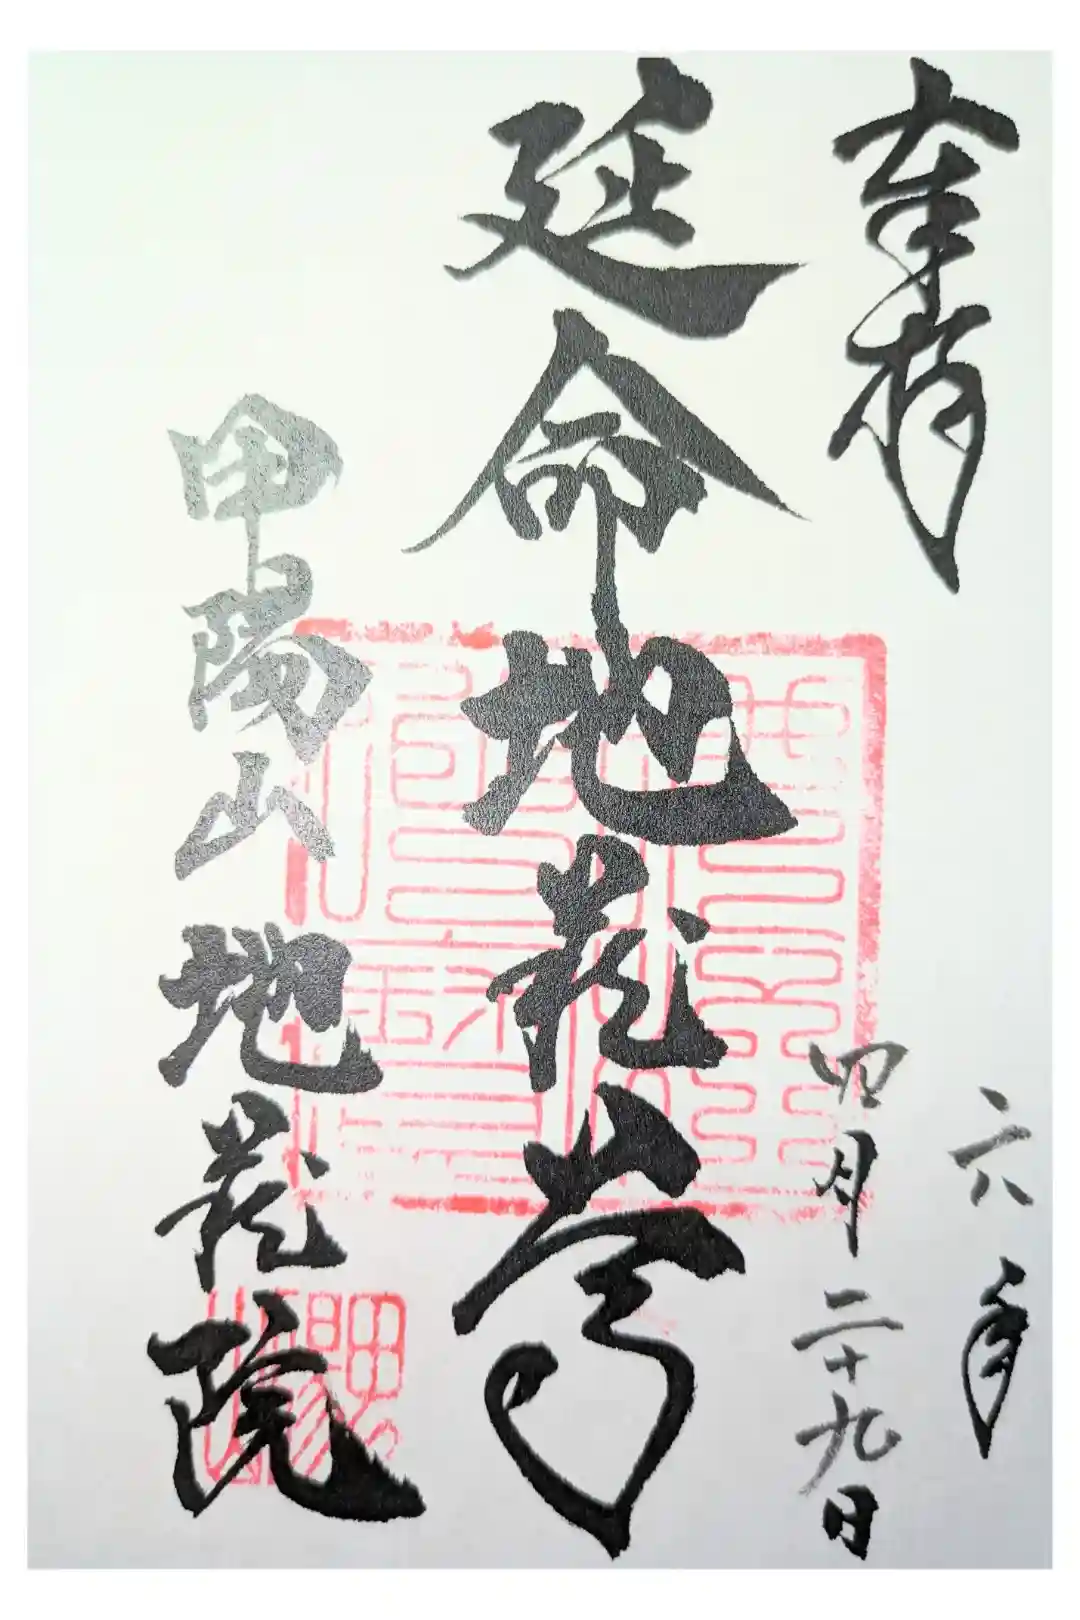 奉拝
六年
四月二十九日
延命地蔵尊
甲陽山 地蔵院